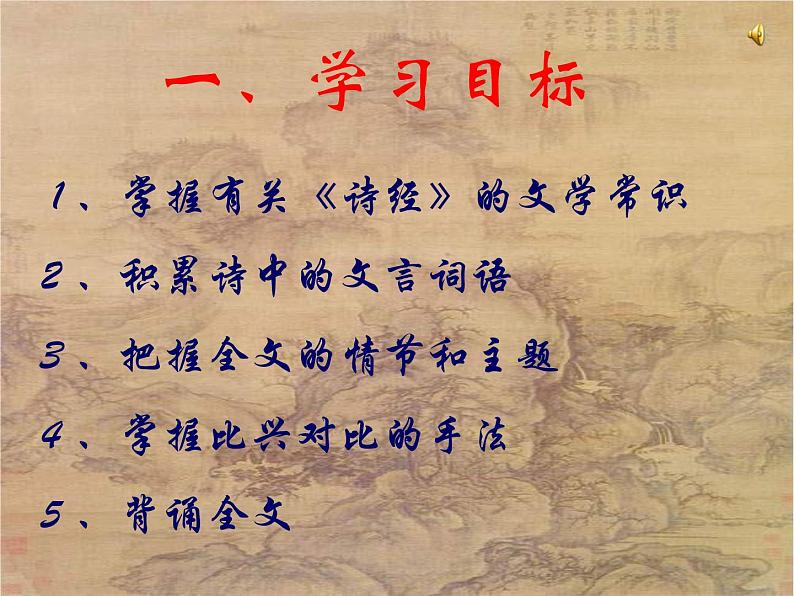 一、学习目标
1、掌握有关《诗经》的文学常识
2、积累诗中的文言词语
3、把握全文的情节和主题
4、掌握比兴对比的手法
5、背诵全文